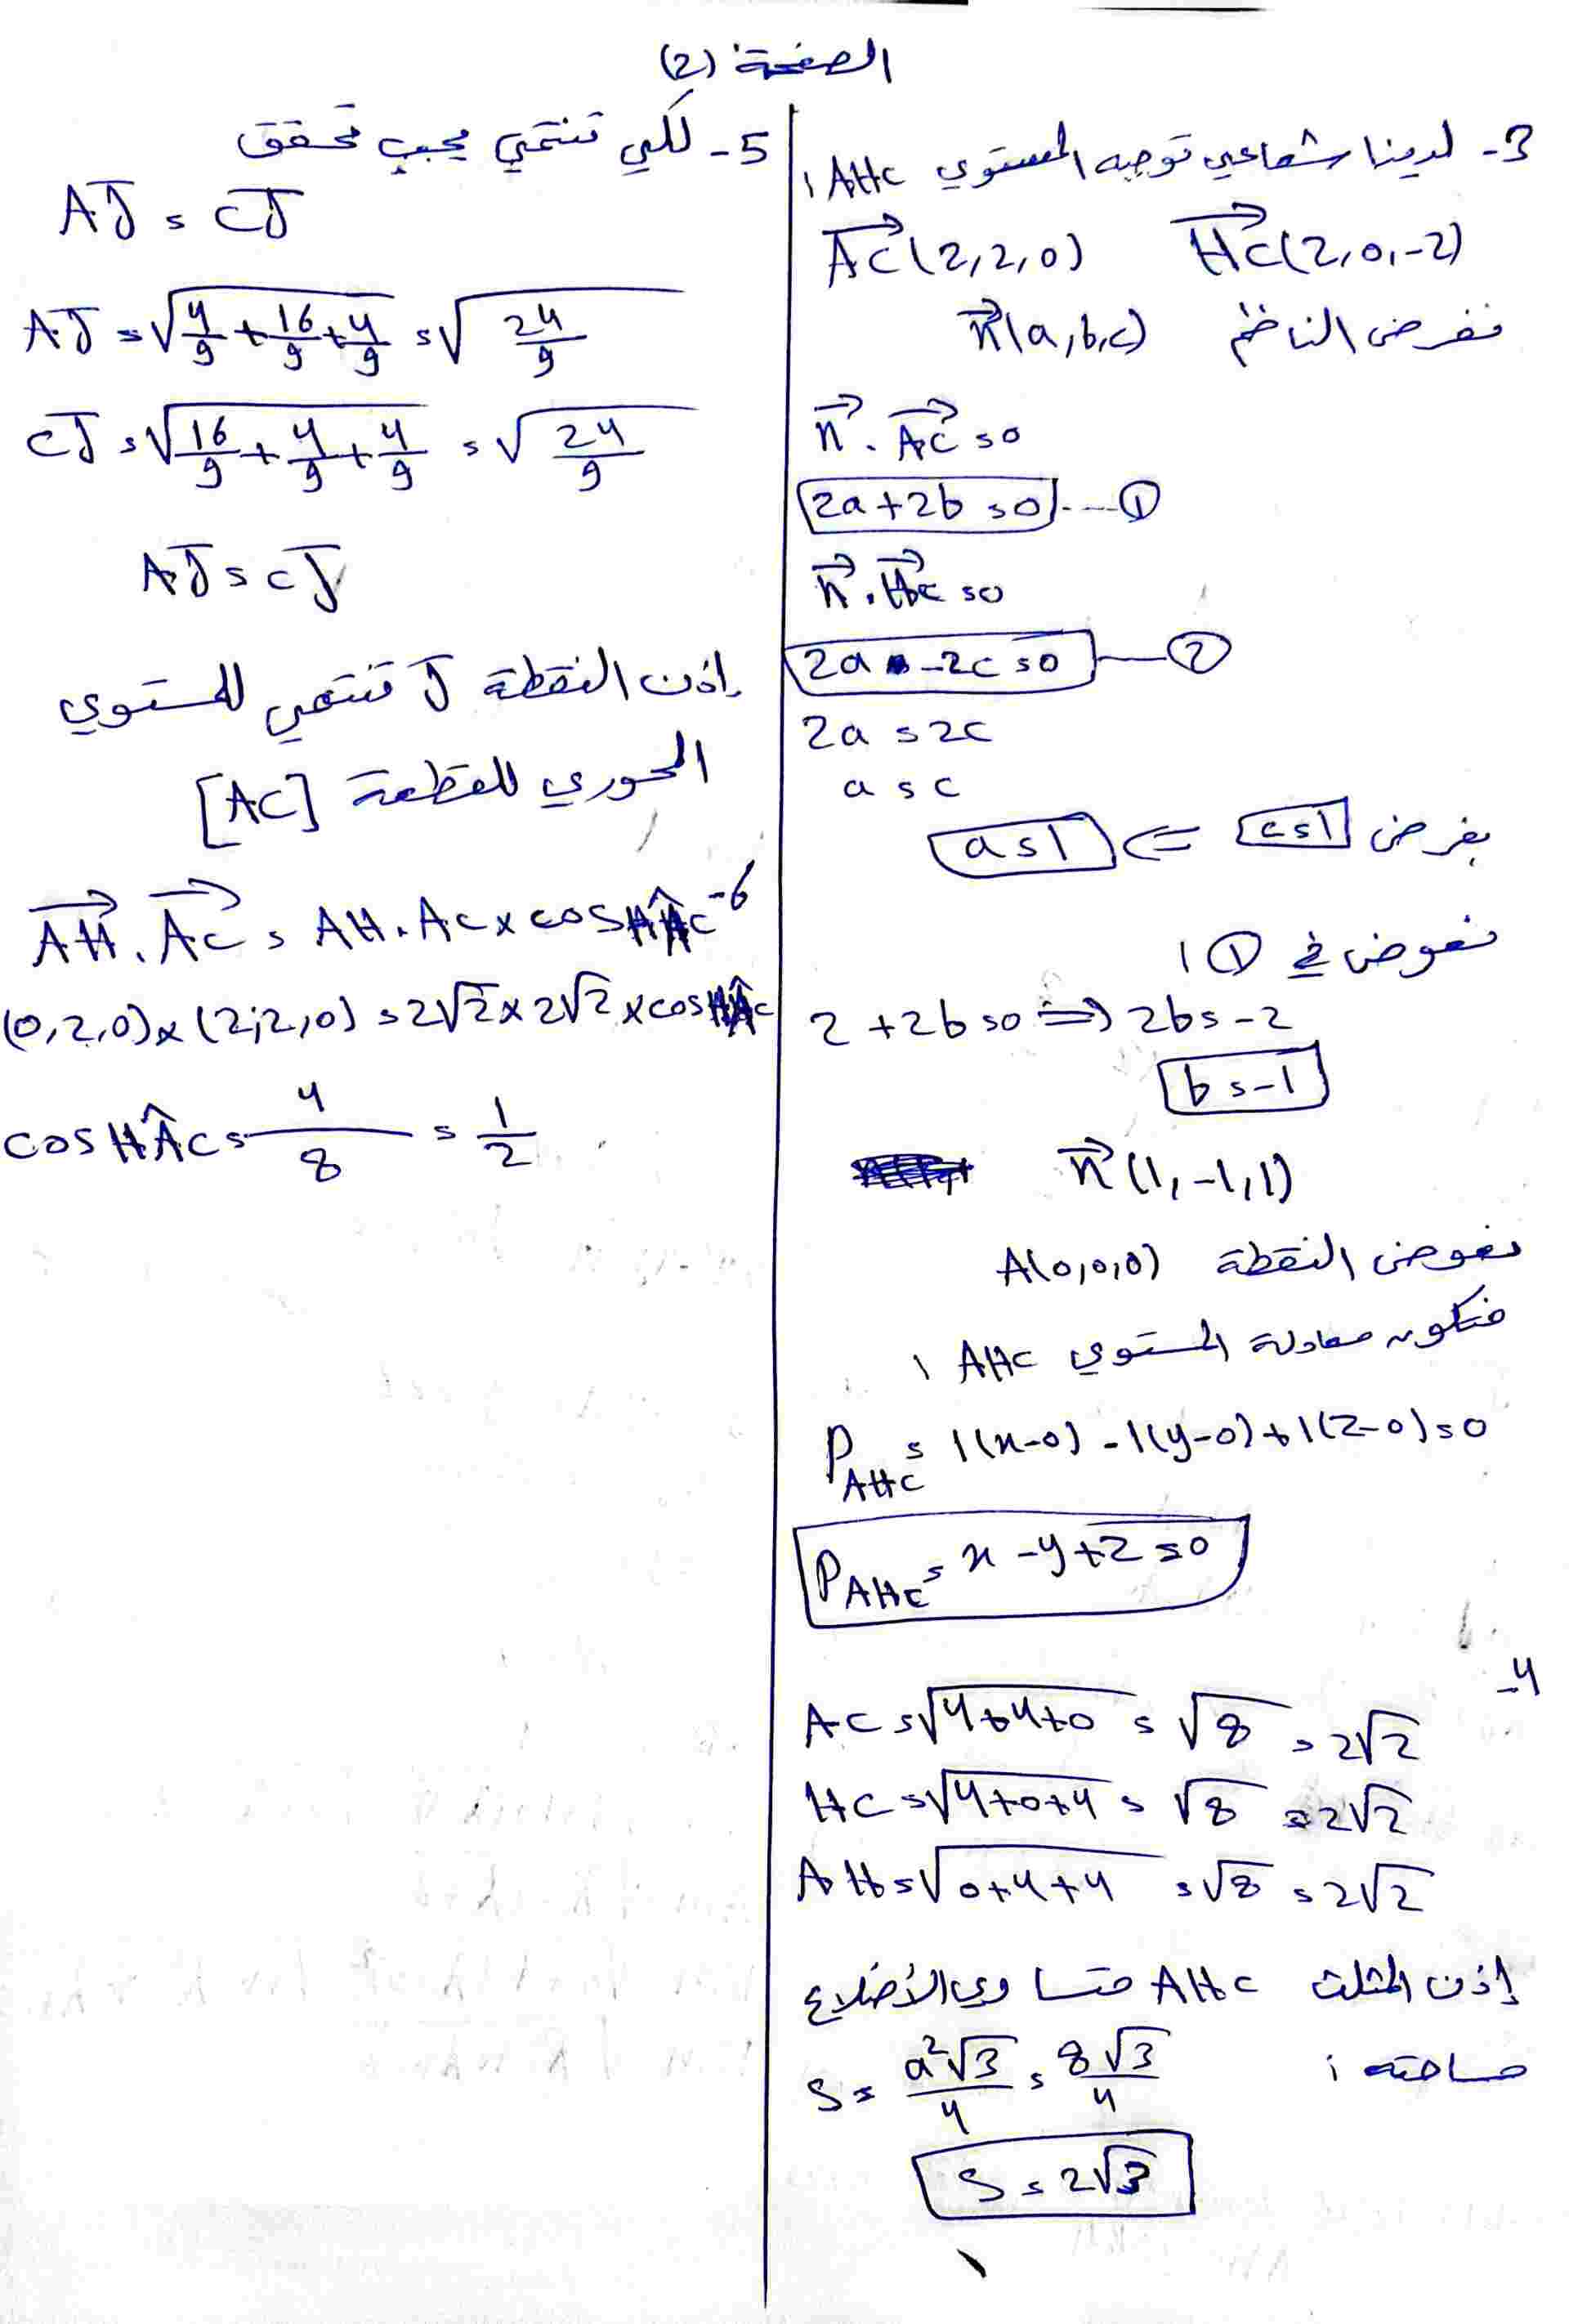 الصفحة (2)
3- لدينا شعاعي توجيه المستوي AHC:
AC(2,2,0) HC(2,0,-2)
نفرض الناظم n(a,b,c)
n . AC = 0
2a + 2b = 0 --- ①
n . HC = 0
2a - 2c = 0 — ②
2a = 2c
a = c
بفرض c=1 ⇒ a=1
نعوض في ① :
2 + 2b = 0 ⇒ 2b = -2
b = -1
n(1,-1,1)
نعوض النقطة A(0,0,0)
فتكون معادلة المستوي AHC :
P AHC = 1(x-0) - 1(y-0) + 1(z-0) = 0
P AHC = x - y + z = 0
4-
AC = √4+4+0 = √8 = 2√2
HC = √4+0+4 = √8 = 2√2
AH = √0+4+4 = √8 = 2√2
إذن المثلث AHC متساوي الأضلاع
مساحته :
S = a²√3/4 = 8√3/4
S = 2√3
5- لكي تنتمي يجب تحقق
AJ = CJ
AJ = √4/9 + 16/9 + 4/9 = √24/9
CJ = √16/9 + 4/9 + 4/9 = √24/9
AJ = CJ
إذن النقطة J تنتمي للمستوي
المحوري للقطعة [AC]
6- AH . AC = AH . AC x cos HÂC
(0,2,0) x (2,2,0) = 2√2 x 2√2 x cos HÂC
cos HÂC = 4/8 = 1/2